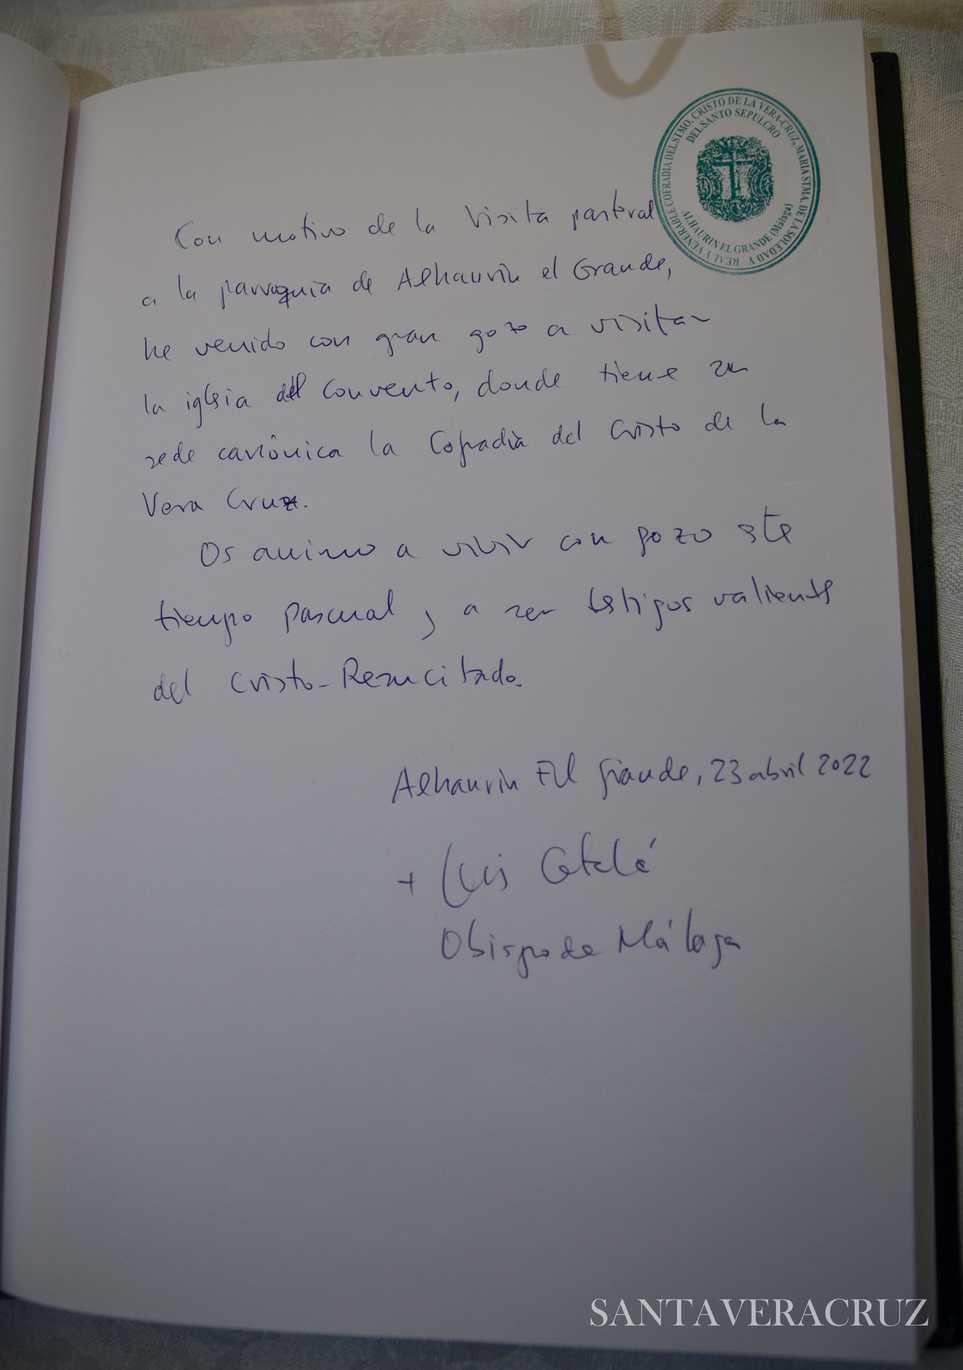 REAL Y VENERABLE COFRADIA DEL STMO. CRISTO DE LA VERA-CRUZ, MARIA STMA DE LA SOLEDAD Y
DEL SANTO SEPULCRO
ALHAURIN EL GRANDE (Málaga)
Con motivo de la Visita pastoral
a la parroquia de Alhaurín el Grande,
he venido con gran gozo a visitar
la iglesia del Convento, donde tiene su
sede canónica la Cofradía del Cristo de la
Vera Cruz.
Os animo a vivir con gozo este
tiempo pascual, y a ser testigos valientes
del Cristo-Resucitado.
Alhaurín El Grande, 23 abril 2022
+ Luis Catalá
Obispo de Málaga
SANTAVERACRUZ